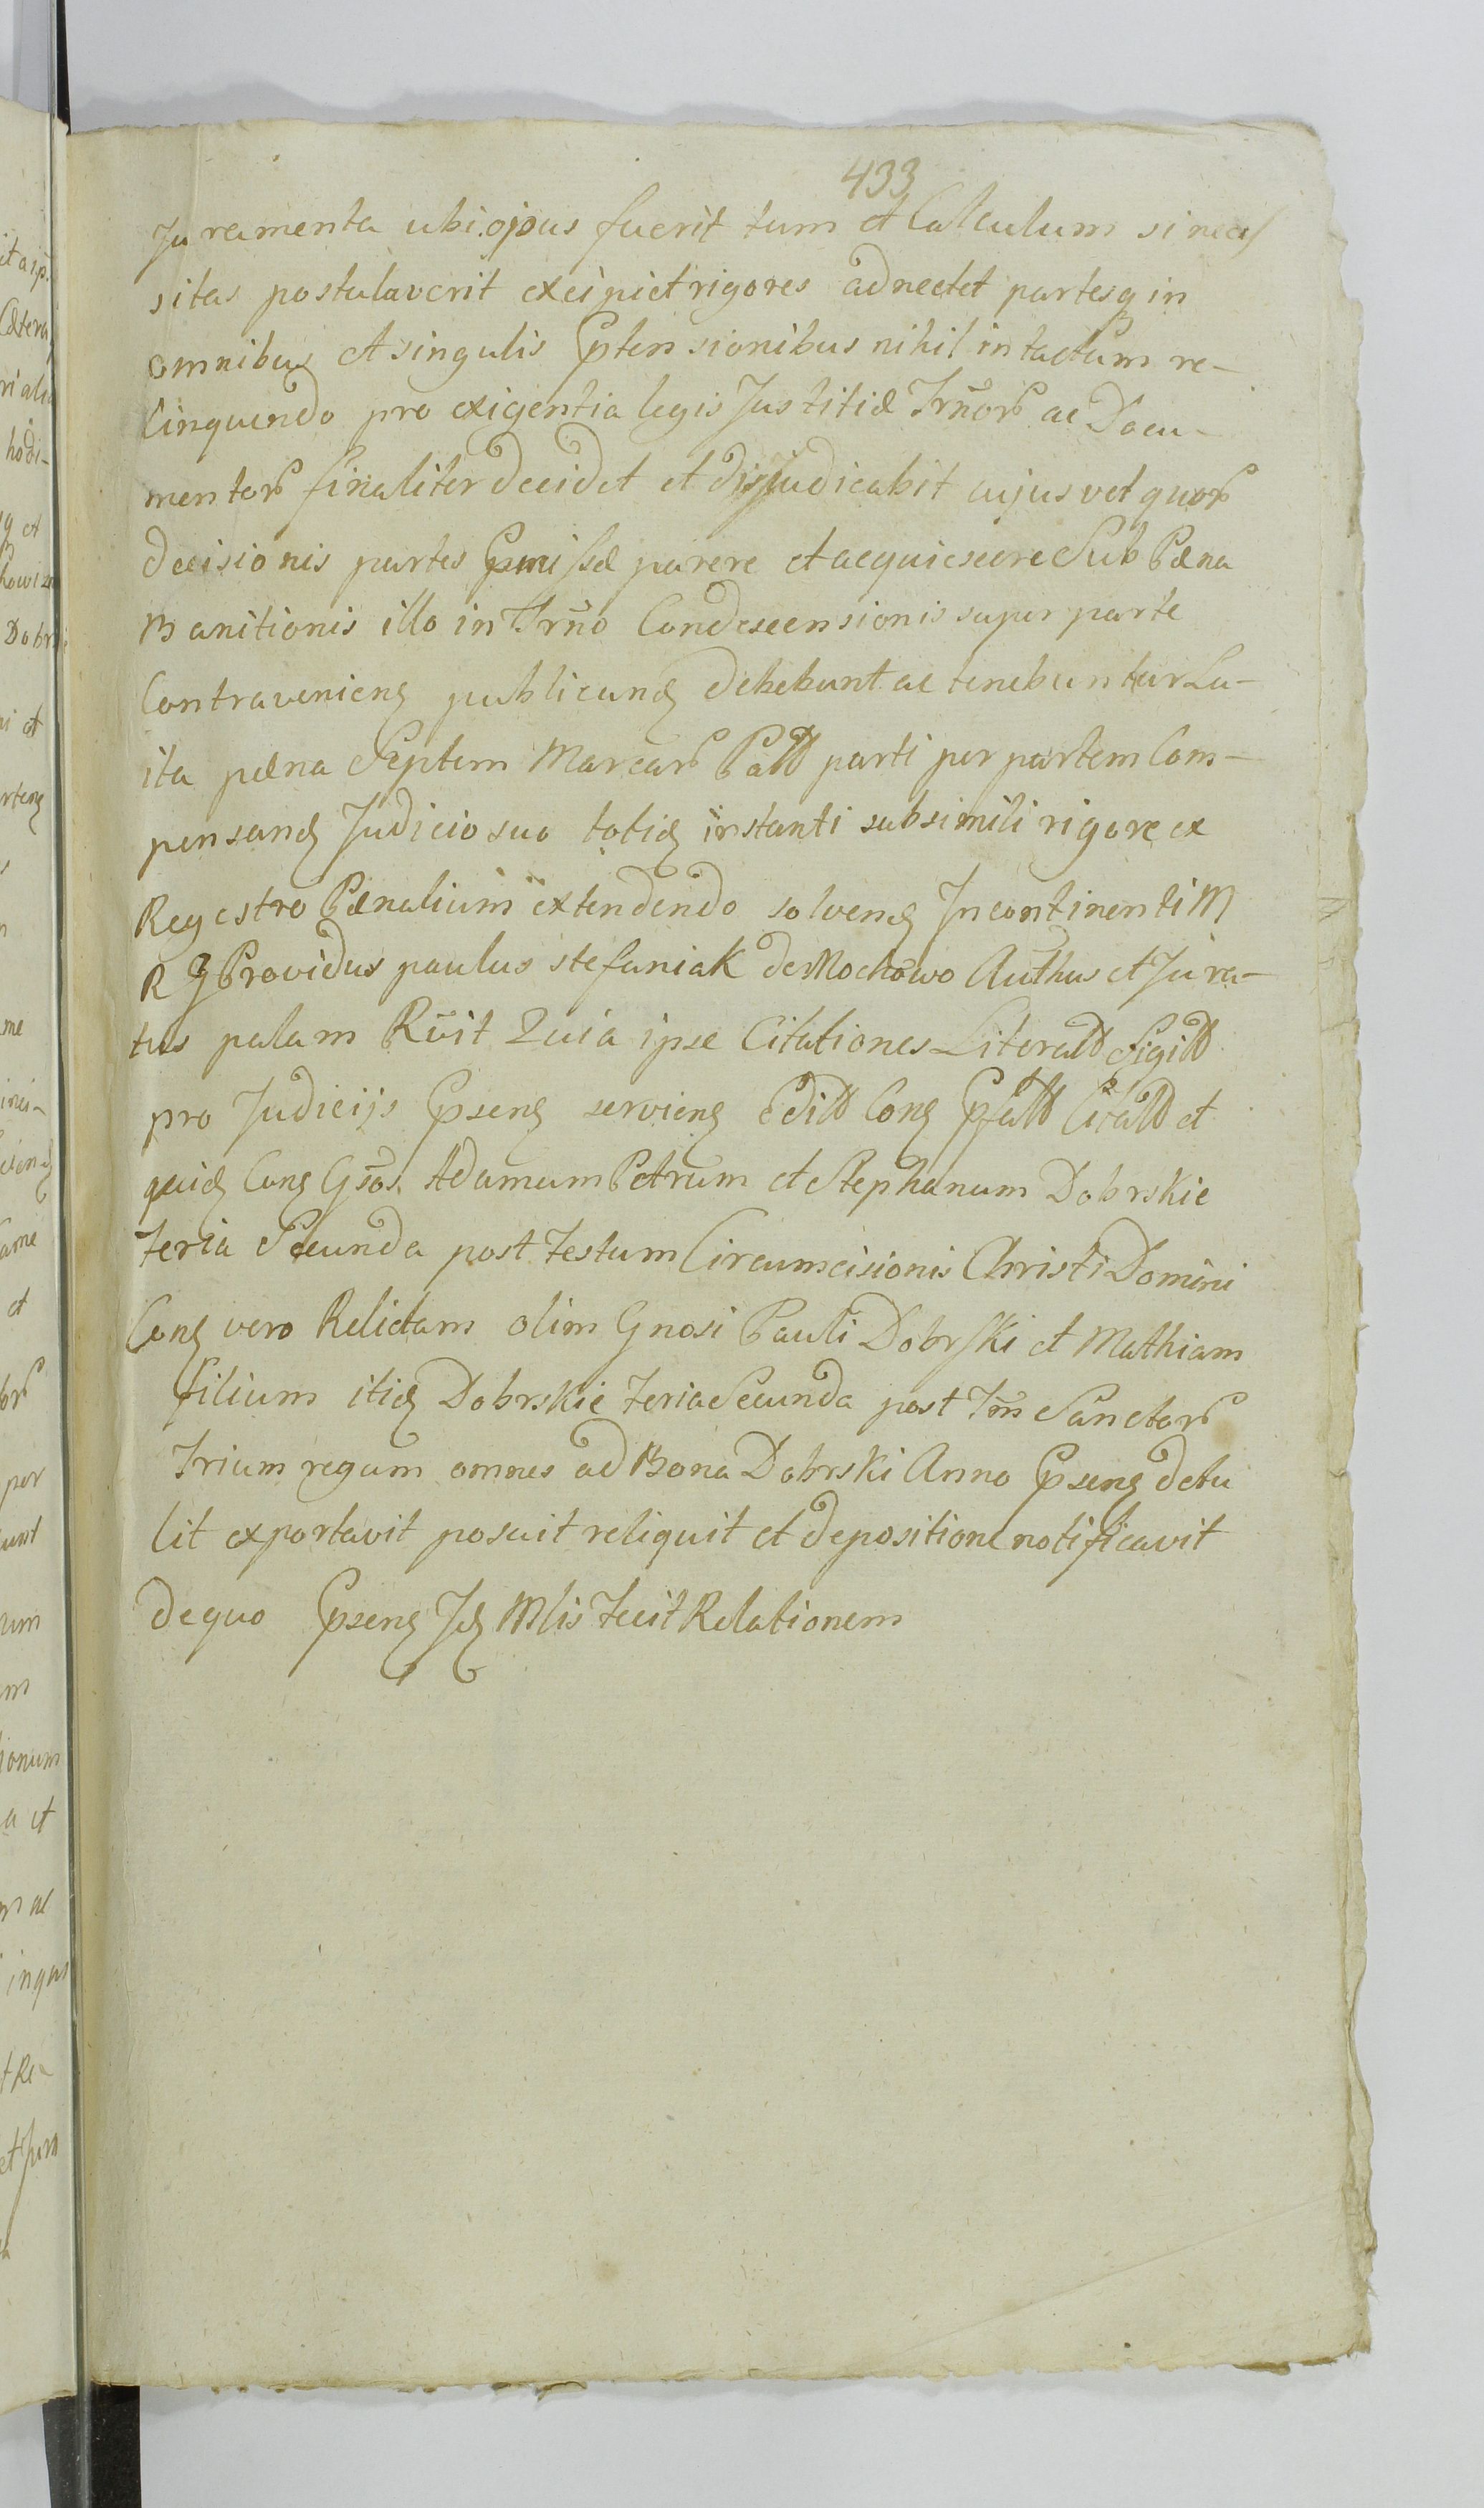 433
Juramenta ubi opus fuerit tum et Calculum si neces
sitas postulaverit excipiet rigores adnectet partesq in
omnibus et singulis Ptensionibus nihil intactum re-
linquendo pro exigentia legis Justitiæ Trnor ac Docu-
mentor finaliter decidet et disjudicabit cujus vel quor
decisionis partes Pmissæ parere et acquiescere Sub Pæna
Banitionis illo in Trno Condescensionis super parte
Contraveniens publicand debebunt ac tenebuntur Lu-
ita pæna Septem Marcar Pall parti per partem Com-
pensand Judicio suo totid instanti sub simili rigore ex
Regestro Pænalium extendendo solvend Incontinenti M
R Providus paulus stefaniak de Mochowo Authus et Jura-
tus palam Rvit Quia ipse Citationes Literall Sigill
pro Judicijs Psens serviens Edill Cong Citall et
quid Cong Gsos Adamum Petrum et Stephanum Dobrskie
feria Secunda post festum Circumcisionis Christi Domini
Cong vero Relictam olim Gnosi Pauli Dobrski et Mathiam
filium itid Dobrskie feria Secunda post fm Sanctor
Trium regum omnes ad Bona Dobrski Anno Psens detu
lit exportavit posuit reliquit et depositione notificavit
de quo Psens Jd Mlis fecit Relationem